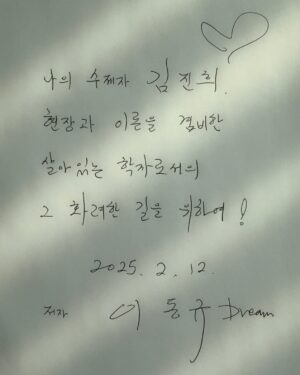 나의 수제자 김진희.
현장과 이론을 겸비한
살아있는 학자로서의
그 화려한 길을 위하여!
2025. 2. 12.
저자 이동규 Dream